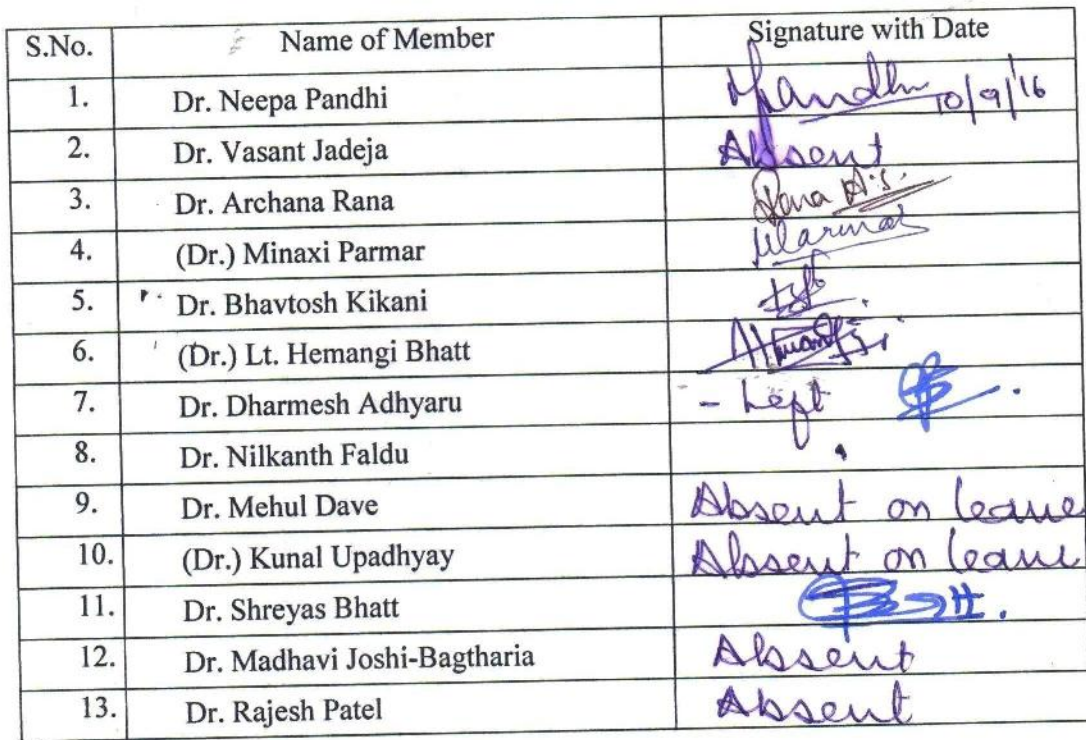 S.No. Name of Member Signature with Date
1. Dr. Neepa Pandhi Pandhi 10/9/16
2. Dr. Vasant Jadeja Absent
3. Dr. Archana Rana Rana A.S.
4. (Dr.) Minaxi Parmar Parmar
5. Dr. Bhavtosh Kikani
6. (Dr.) Lt. Hemangi Bhatt
7. Dr. Dharmesh Adhyaru - Left
8. Dr. Nilkanth Faldu
9. Dr. Mehul Dave Absent on leave
10. (Dr.) Kunal Upadhyay Absent on leave
11. Dr. Shreyas Bhatt
12. Dr. Madhavi Joshi-Bagtharia Absent
13. Dr. Rajesh Patel Absent